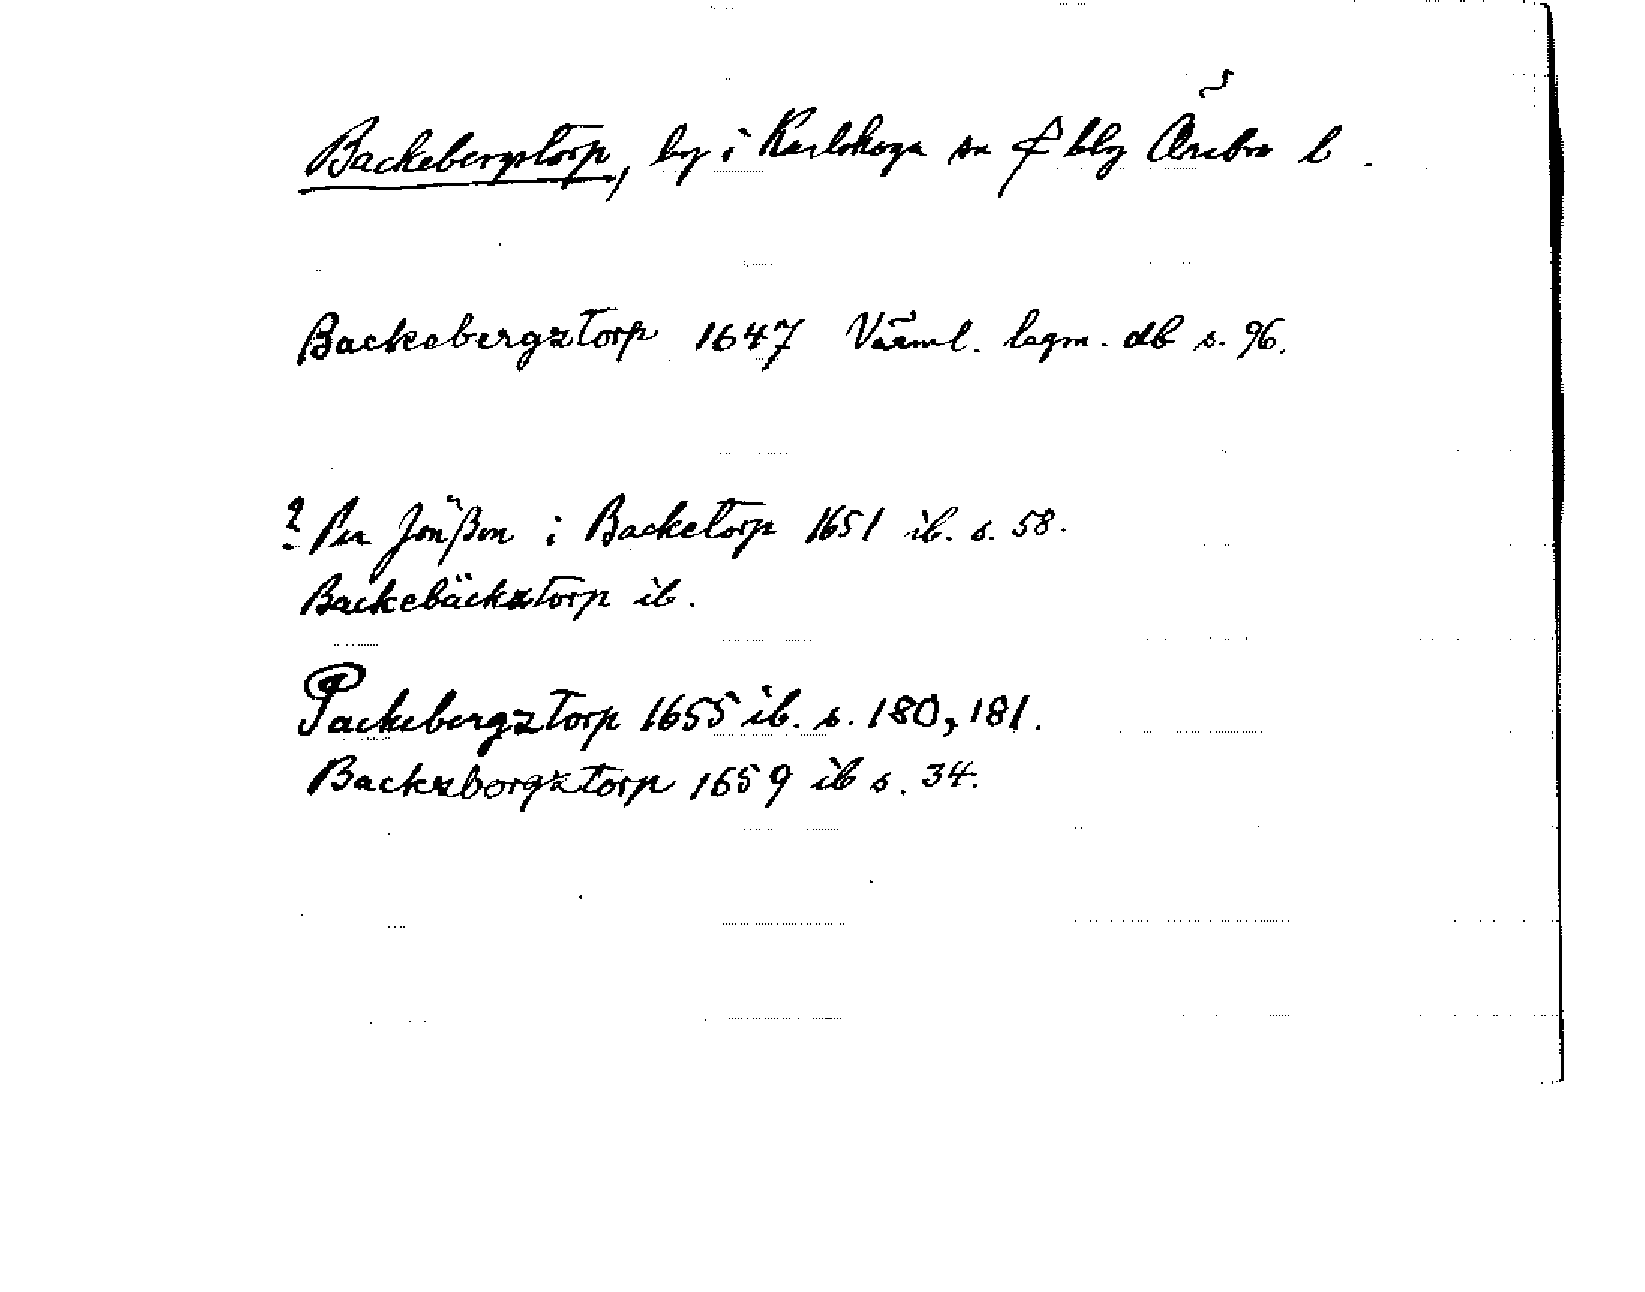 Backebergstorp, by i Karlskoga sn o blg Örebro l.
Backebergztorp 1647 Värml. lagm. db s. 96.
? Per Jönßon i Backetorp 1651 ib. s. 58.
Backebäckztorp ib.
Packebergztorp 1655 ib. s. 180, 181.
Backzborgztorp 1659 ib s. 34.